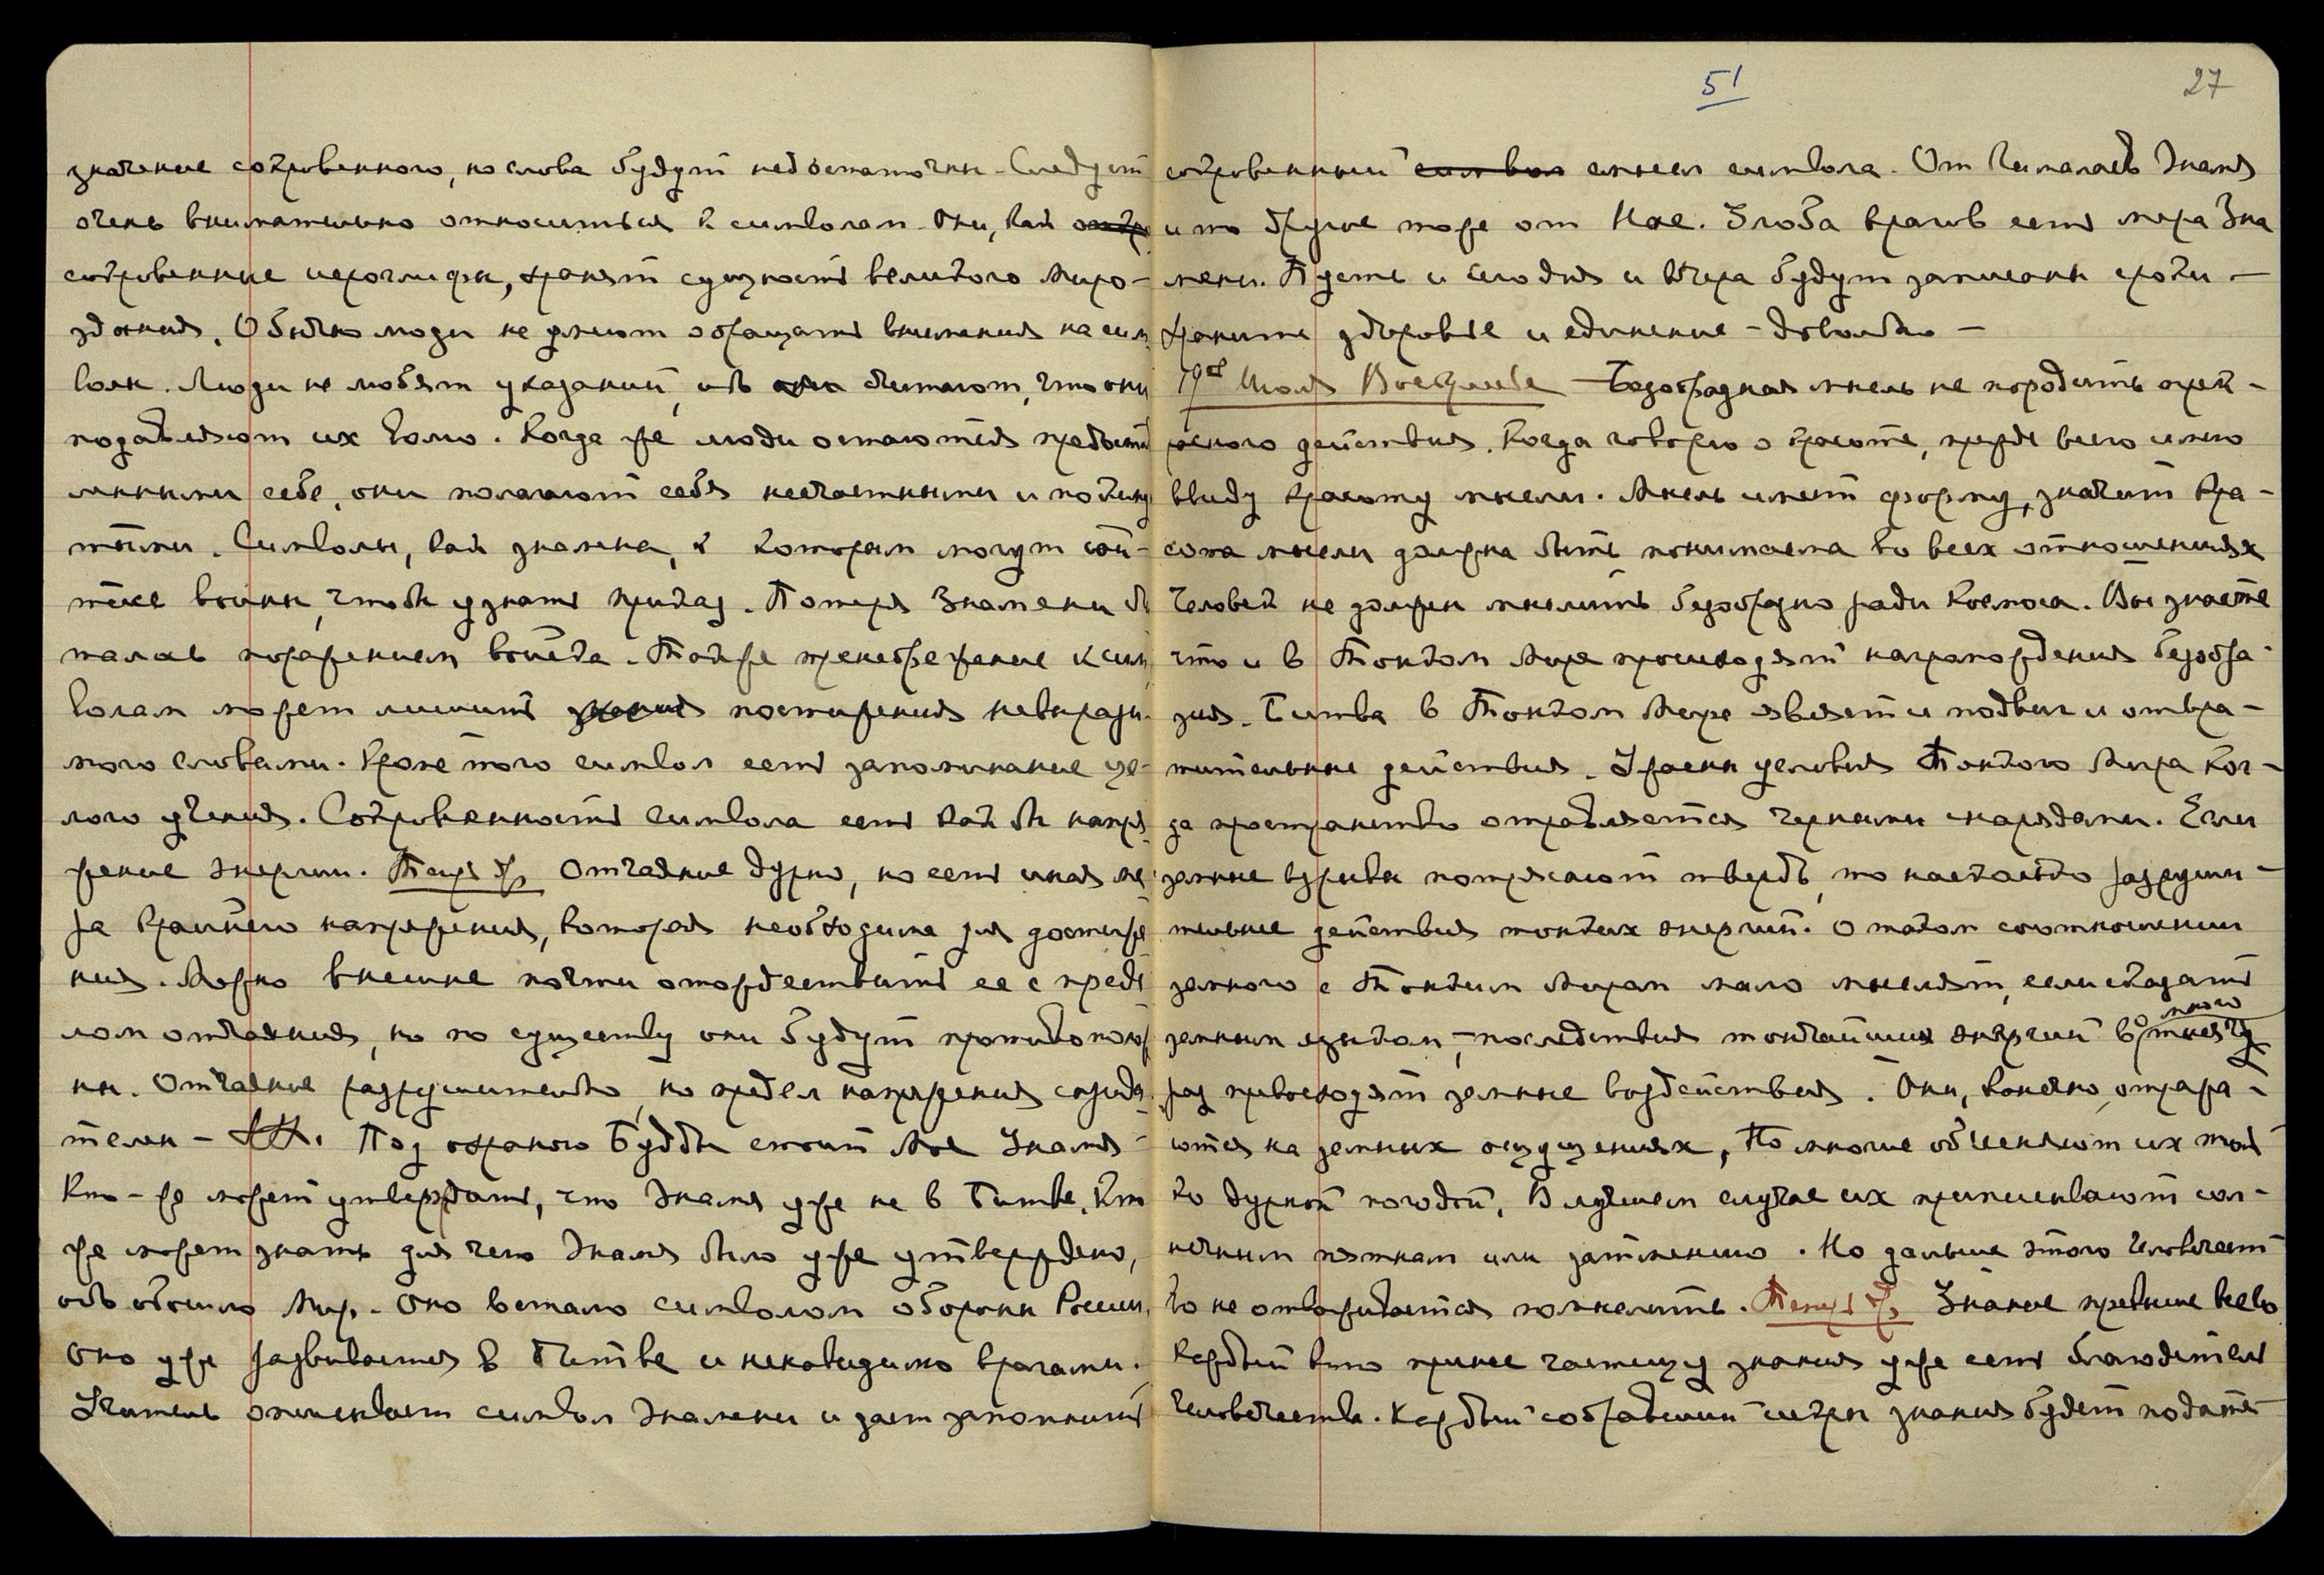 значение сокровенного, но слова будут недостаточны. Следует
очень внимательно относиться к символам. Они, как
сокровенные иероглифы, хранят сущность великого Миро-
здания. Обычно люди не умеют обращать внимания на сим
волы. Люди не любят указаний, ибо считают, что они
подавляют их волю. Когда же люди остаются предостав
ленными себе, они полагают себя несчастными и покину
тыми. Символы, как знамена, к которым могут сой-
тись воины, чтоб узнать приказ. Потеря Знамени счи
талась поражением войска. Также пренебрежение к сим
волам может лишить постижения невырази-
мого словами. Кроме того символ есть запоминание це-
лого учения. Сокровенность символа есть как бы напря
жение энергии. Отчаяние дурно, но есть иная ме
ра крайнего напряжения, которая необходима для достиже
ния. Можно внешне почти отождествить ее с преде
лом отчаяния, но по существу они будут противополож
ны. Отчаяние разрушительно, но предел напряжения созида
телен – Под охраною Будды стоит Мое Знамя –
Кто-же может утверждать, что Знамя уже не в Битве. Кто
же может знать для чего Знамя было уже утверждено,
ибо обошло Мир. Оно встало символом обороны России,
Оно уже развивается в Битве и неновидимо врагами.
Учитель описывает символ Знамени и дает запомнить
51
27
сокровенный символ смысл символа. От Гималаев Знамя
и то другое тоже от Нас. Злоба врагов есть мера Зна
мени. Пусть и сегодня и вчера будут записаны
храните здоровье и единение – довольно –
19ое Июля Воскресенье Безобразная мысль не породить прек-
расного действия. Когда говорю о красоте, прежде всего имею
ввиду красоту мысли. Мысль имеет форму, значит кра-
сота мысли должна быть понимаема во всех отношениях
Человек не должен мыслить безобразно ради Космоса. Вы знаете
что и в Тонком Мире происходят нагромождения безобра-
зия. Битва в Тонком Мире являет и подвиг и отвра-
тительные действия. Ужасны условия Тонкого Мира ког-
да пространство отравляется черными снарядами. Если
земные взрывы потрясают твердь, то насколько разруши-
тельнее действия тонких энергий. О таком соотношении
земного с Тонким Миром мало мыслят, если сказать
земным языком, – последствия тончайших энергий во много тысяч
раз превосходят земные воздействия. Они, конечно, отража-
ются на земных ощущениях, Но многие объясняют их толь
ко дурной погодой, В лучшем случае их приписывают сол-
нечным пятнам или затмению. Но дальше этого Человечест
во не отваживается помыслить. Знание превыше всего
Каждый кто принес частицу знания уже есть благодетель
Человечества. Каждый собравший искры знания будет подате